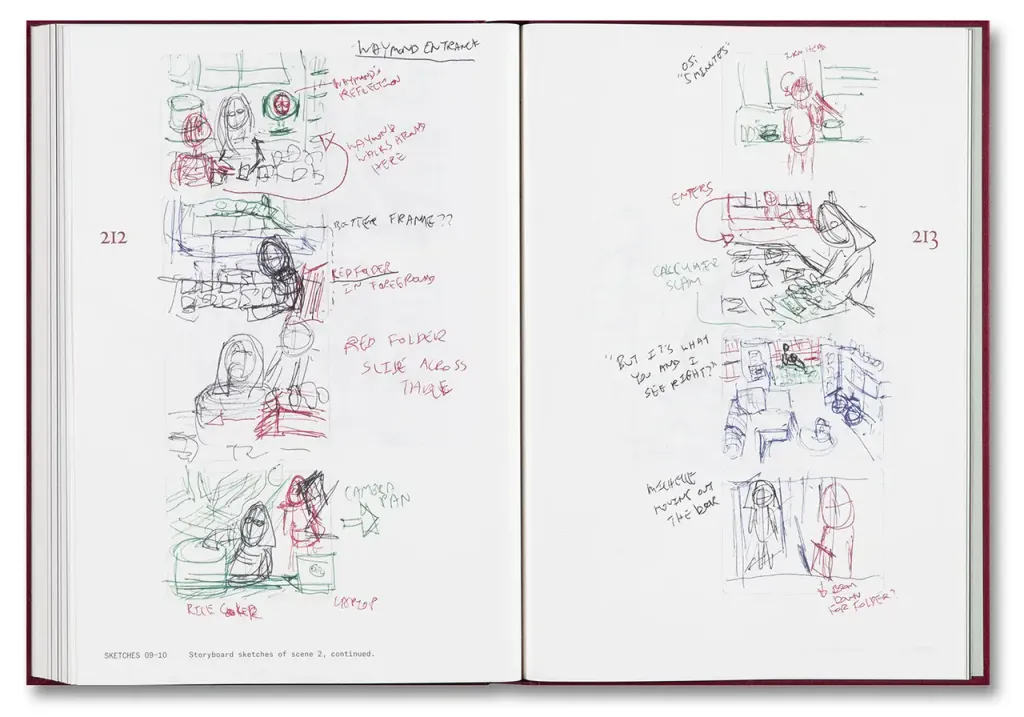 WAYMOND ENTRANCE
WAYMOND'S
REFLECTION
WAYMOND
WALKS AROUND
HERE
212
BETTER FRAME??
RED FOLDER
IN FOREGROUND
RED FOLDER
SLIDE ACROSS
TABLE
CAMERA
PAN
RICE COOKER
LAPTOP
SKETCHES 09–10 Storyboard sketches of scene 2, continued.
"5 MINUTES"
TURN HEAD
ENTERS
213
CALCULATOR
SLAM
"BUT IT'S WHAT
YOU AND I
SEE RIGHT?"
MICHELLE
MOVING OUT
THE DOOR
DOWN
FOR FOLDER?